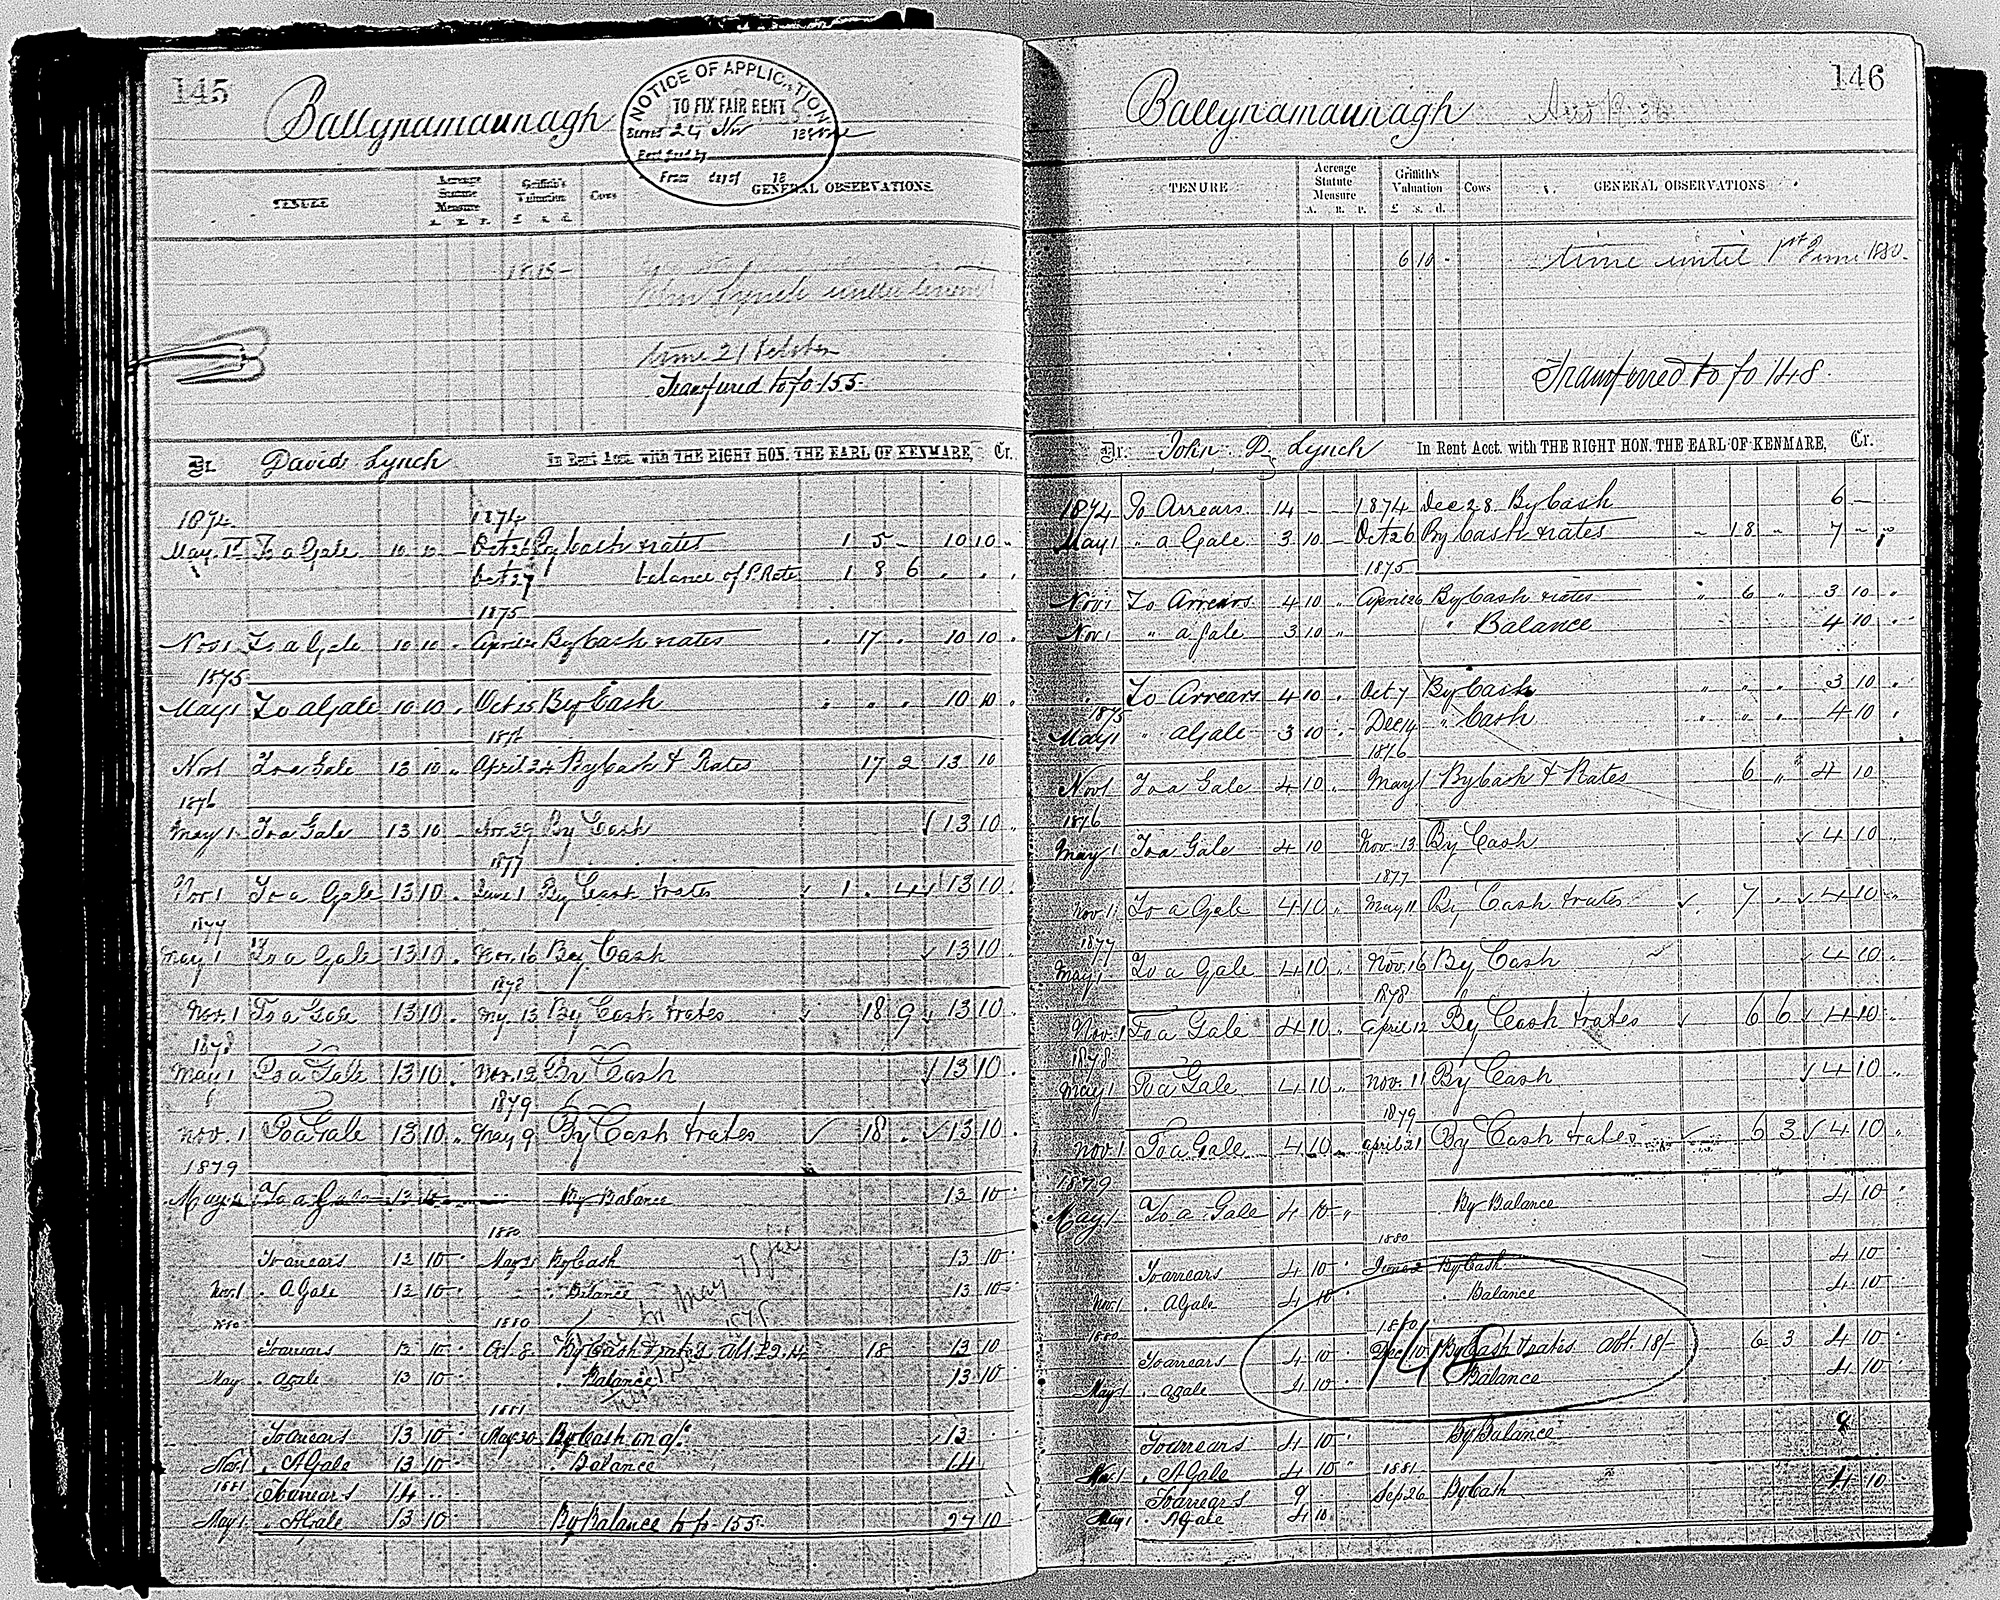 145
Ballynamaunagh
NOTICE OF APPLICATION
TO FIX FAIR RENT
Served 24 Nov 189
From day of 18
TENURE Acreage Statute Measure A. R. P. Griffith's Valuation £ s. d. Cows GENERAL OBSERVATIONS
Transferred to fo 155
Dr. David Lynch In Rent Acct. with THE RIGHT HON. THE EARL OF KENMARE, Cr.
1874 1874
May 1st To a Gale 10 10 - Oct 26 By Cash & rates 1 5 - 10 10 "
Oct 27 balance of P. Rate 1 8 6 . . .
1875
Nov 1 To a Gale 10 10 . April By Cash & rates . 17 . 10 10 .
1875
May 1 To a Gale 10 10 . Oct 15 By Cash " " " 10 10 .
1876
Nov 1 To a Gale 13 10 " April 24 By Cash & Rates 17 2 13 10
1876
May 1 To a Gale 13 10 - Nov. 29 By Cash √ 13 10 "
1877
Nov 1 To a Gale 13 10 . June 1 By Cash & rates √ 1 . 4 √ 13 10 .
1877
May 1 To a Gale 13 10 . Nov. 16 By Cash √ 13 10 .
1878
Nov. 1 To a Gale 13 10 . My. 13 By Cash & rates √ 18 9 √ 13 10 .
1878
May 1 To a Gale 13 10 . Nov. 12 By Cash √ 13 10 .
1879
Nov. 1 To a Gale 13 10 " May 9 By Cash & rates √ 18 . √ 13 10 .
1879
May 1 To a Gale 13 10 By Balance 13 10 .
1880
To arrears 13 10 . May 21 By Cash 13 10 .
Nov. 1 . A Gale 13 10 . . Balance 13 10 .
1880 1880
To arrears 13 10 . Oct. 8 By Cash & rates Abt. £2.14 18 13 10
May . a gale 13 10 . Balance 13 10
1881
To arrears 13 10 . May 30 By Cash on a/c 13 .
Nov. 1 . A Gale 13 10 . . Balance 14
1881 To arrears 14 . .
May 1 . A Gale 13 10 By Balance to fo 155 27 10
146
Ballynamaunagh
TENURE Acreage Statute Measure A. R. P. Griffith's Valuation £ s. d. Cows GENERAL OBSERVATIONS
6 10 - time until 1st June 1880.
Transferred to fo 148
Dr. John D. Lynch In Rent Acct. with THE RIGHT HON. THE EARL OF KENMARE, Cr.
1874 To Arrears 14 - - 1874 Dec 28 By Cash 6 -
May 1 " a Gale 3 10 - Oct 26 By Cash & rates - 18 " 7 " "
1875
Nov 1 To Arrears 4 10 " April 26 By Cash & rates " 6 " 3 10 .
Nov. 1 " a Gale 3 10 " " Balance 4 10 .
To Arrears 4 10 . Oct 7 By Cash " " " 3 10 .
1875
May 1 " a Gale 3 10 . Dec 14 " Cash " " " 4 10 .
1876
Nov 1 To a Gale 4 10 . May 1 By Cash & Rates 6 " 4 10
1876
May 1 To a Gale 4 10 Nov. 13 By Cash √ 4 10
1877
Nov. 1 To a Gale 4 10 " May 11 By Cash & rates √ 7 . √ 4 10 "
1877
May 1 To a Gale 4 10 " Nov. 16 By Cash √ 4 10 .
1878
Nov. 1 To a Gale 4 10 " April 12 By Cash & rates √ 6 6 √ 4 10 "
1878
May 1 To a Gale 4 10 " Nov. 11 By Cash √ 4 10 .
1879
Nov. 1 To a Gale 4 10 " April 21 By Cash & rates √ 6 3 √ 4 10 "
1879
May 1 To a Gale 4 10 " By Balance 4 10 .
1880
To arrears 4 10 . June 2 By Cash 4 10 .
Nov. 1 . A Gale 4 10 . . Balance 4 10 .
1880 1880
To arrears 4 10 Dec 10 By Cash & rates Abt. 18/- 6 3 4 10 .
May 1 . a gale 4 10 . Balance 4 10 .
To arrears 4 10 . By Balance 9
Nov. 1 . A Gale 4 10 " 1881
To arrears 9 . Sep 26 By Cash 4 10 .
May 1 . A Gale 4 10 .